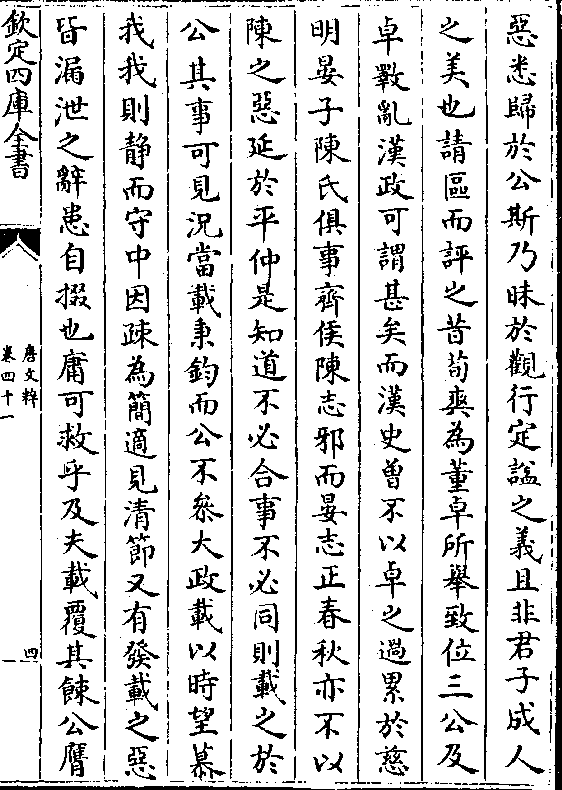 惡悉歸於公斯乃昧於觀行定諡之義且非君子成人
之美也請區而評之昔荀爽為董卓所舉致位三公及
卓斁亂漢政可謂甚矣而漢史曾不以卓之過累於慈
明晏子陳氏俱事齊侯陳志邪而晏志正春秋亦不以
陳之惡延於平仲是知道不必合事不必同則載之於
公其事可見況當載秉鈞而公不叅大政載以時望慕
我我則静而守中因疎為簡適見清節又有發載之惡
皆漏泄之辭患自掇也庸可救乎及夫載覆其餗公膺
欽定四庫全書
唐文粹
卷四十一
四